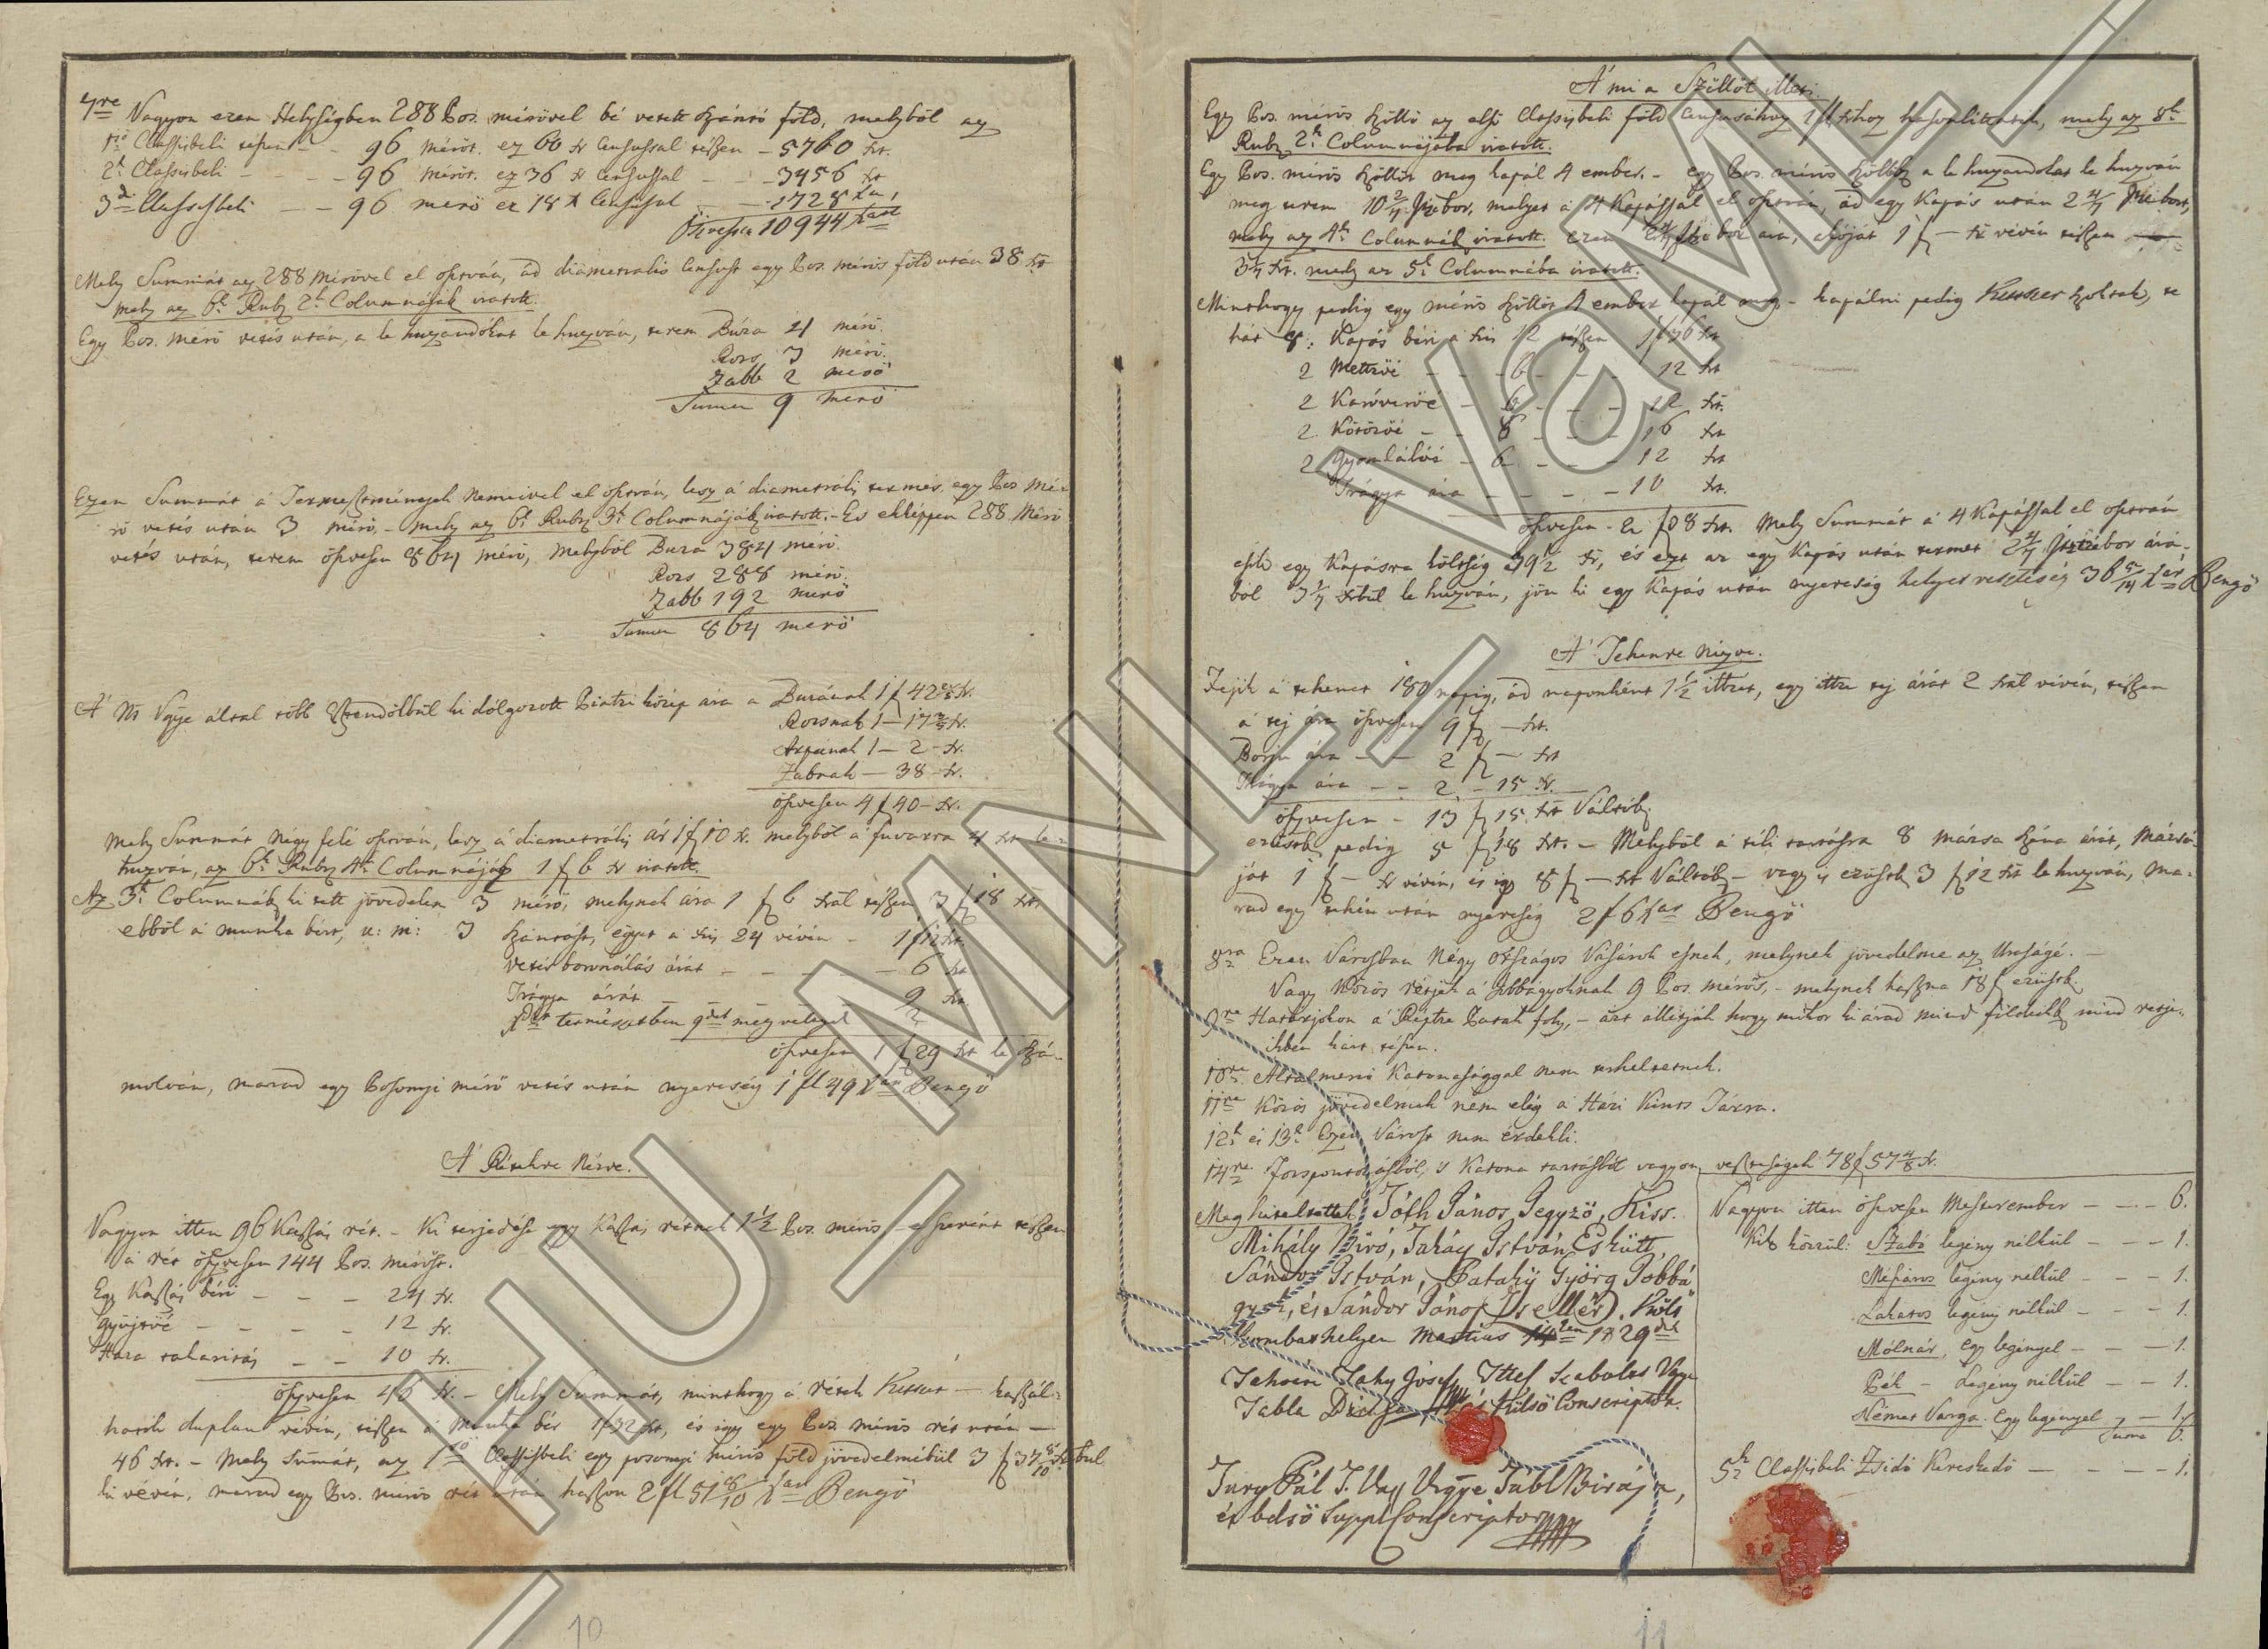 7re Vagyon ezen Helységben 288 Pos. mérővel bé vetett szántó föld, melyből az
1ső Classisbeli tészen - - 96 mérőt. ez 60 xr Censussal tészen - 5760 xr.
2k Classisbeli - - - - 96 mérőt. ez 36 xr Censussal - - - 3456 xr
3dik Classisbeli - - 96 mérő ez 18 x Censussal - - 1728 xra,
Öszvessen 10944 xart
Mely Summát az 288 mérővel el osztván, ád diametralis Censust egy Pos. mérős föld után 38 xr
mely az 6k Rubr 2k Columnáják iratott.
Egy Pos. mérő vetés után, a le huzandókat le huzván, terem Búza 4 mérő.
Rozs 3 mérő.
Zabb 2 mérő
Summa 9 mérő
Ezen Summát a Termesztmények Nemeivel el osztván, lesz a diametrális termés egy Pos Mé-
rő vetés után 3 mérő, - mely az 6k Rubr 3k Columnáják iratott. - És ekképpen 288 Mérő
vetés után, terem öszvesen 864 mérő, Melyből Buza 384 mérő.
Rozs 288 mérő.
Zabb 192 mérő
Summa 864 mérő
A' Ns Vgye által több Esztendőkbül ki dolgozott Piatzi közép ára a Buzának 1 f 42 xr.
Rozsnak 1 - 17 xr.
Árpának 1 - 2 - xr.
Zabnak - 38 - xr.
öszvesen 4 f 40 - xr.
Mely Summát Négy felé osztván, lesz a diametrális ár 1 f 10 x. melyből a' fuvarra 4 xt le-
huzván, az 6k Rubr 4k Columnáják 1 f 6 xr iratott.
Az 3k Columnák ki tett jövedelem 3 mérő, melynek ára 1 f 6 xrál tészen 3 f 18 xr.
ebből a munka bért, u: m: 3 szántást, egyet a xris 24 vévén - 1 f 12 xr.
vetés boronálás árát - - - - - 6 xr
Trágya árát - - - - - 9 xr
természetben 9det meg
öszvesen 1 f 29 xr le szá-
molván, marad egy Posonyi mérő vetés után nyereség 1 fl 49 xar Pengő
A' Rétekre Nézve.
Vagyon itten 96 Kaszás rét. - Ki terjedése egy Kaszás rétnek 1 1/2 Pos. mérős - e szerént tészen
a rét öszvesen 144 Pos. mérőst.
Egy Kaszás béri - - - 24 xr.
gyüjtőé - - - - 12 xr.
Haza takarítás - - 10 xr.
öszvesen 46 xr. - Mely Summát, minthogy a rétek Kettőst - kaszál-
hatók duplán vévén, tészen a Munka bér 1 f 32 xr, és így egy Pos. mérős rét után -
46 xr. - Mely Sumát, az 1ső Classisbeli egy posonyi mérős föld jövedelmébül 3 f 37 8/10 xrbul
ki vévén, marad egy Pos. mérős rét után haszon 2 fl 51 8/10 xart Pengő
10
A' mi a Szőllőt illeti.
Egy Pos. mérős szőllő az első Classisbeli föld Censusához 1 f xrhoz hasonlíttatik, mely az 8k
Rubr 2k Columnájába iratott.
Egy Pos. mérős szőllőt meg kapál 4 ember. - egy Pos. mérős szőllők a le huzandókat le huzván
meg terem 10 2/7 Itzebor, melyet a 4 Kapással el osztván, ád egy Kapás után 2 4/7
mely az 4k Columnák iratott. ezen ára, akóját 1 f - xr vévén tészen
3/7 xr. mely az 5k Columnába iratott.
Minthogy pedig egy mérős szőllőt 4 ember kapál meg, - kapálni pedig szoktak, te
hát 8: Kapás béri a xris 12 tészen 1 f 36 xr
2 Mettzőé - - - 6 - - - 12 xr
2 Karóverőé - 6 - - - 12 xr.
2 Kötözőé - - 8 - - - 16 xr
2 Gyomlálóé - 6 - - - 12 xr
Trágya ára - - - - 10 xr.
öszvesen - 2 f 38 xr. Mely Summát a 4 Kapással el osztván
esik egy Kapásra költség 39 1/2 xr, és ezt az egy Kapás után termet 2 4/7 árá-
ból 3 1/7 xrbül le huzván, jön ki egy Kapás után nyereség helyet veszteség 36 5/14 xar Pengő
A' Tehenre nézve.
Fejik a tehenet 180 napig, ád naponként 1 1/2 ittzét, egy ittze tej árát 2 xrál vévén, tészen
a tej ára öszvesen 9 f - xr.
Borju ára - - 2 f - xr
Trágya ára - - 2 - 15 xr.
öszvesen - 13 f 15 xr Váltók
ezüstk pedig 5 f 18 xr. - Melyből a téli tartásra 8 mázsa széna árát, Mázsá-
ját 1 f - xr vévén, és így 8 f - xr Váltók - vagy is ezüstk 3 f 12 xr le huzván, ma-
rad egy tehén után nyereség 2 f 6 xar Pengő
8ra Ezen Városban Négy országos Vásárok esnek, melynek jövedelme az Uraságé. -
Vagy közös rétjek a Jobbágyoknak 9 Pos. mérős, - melynek haszna 18 f ezüstk.
9re Határjokon a' Réptze Patak foly, - ázt állitják hogy mikor ki árad mind földeikk mind rétje-
ikben kárt tészen.
10re Általmenő Katonasággal nem terheltetnek.
11re Közös jövedelmek nem elég a' Házi Kints Tárra.
12k és 13k Ezen Várost nem érdekli.
14re Forspontozásból, s Katona tartásból vagyon veszteségek 78 f 57 4/8 xr.
Meg hiteltettek Tóth János Jegyző, Kiss
Mihály Biró, Takács István Eskütt,
Sándor István, Pataky György Jobbá
gyok, és Sándor János Zsellér. Költ
Szombathelyen Martius 14kén 1829det
Jahocsi Jahy Jósef Ittes Szabolcs Vgye
Tabla Birája és külső Conscriptor.
Jury Pál T. Vas Vrgye Tábl Birája,
és belső Suppl Conscriptor
Vagyon itten öszvesen Mesterember - - - 6.
Kik közzül: Szabó legény nélkül - - - 1.
Mészáros legény nélkül - - - 1.
Lakatos legény nélkül - - - 1.
Mólnár, egy legényel - - - 1.
Pék - Legény nélkül - - 1.
Német Varga. Egy legényel - 1.
Suma 6.
5k Classisbeli Zsidó Kereskedő - - - - 1.
11
HU - MNL - VaML -